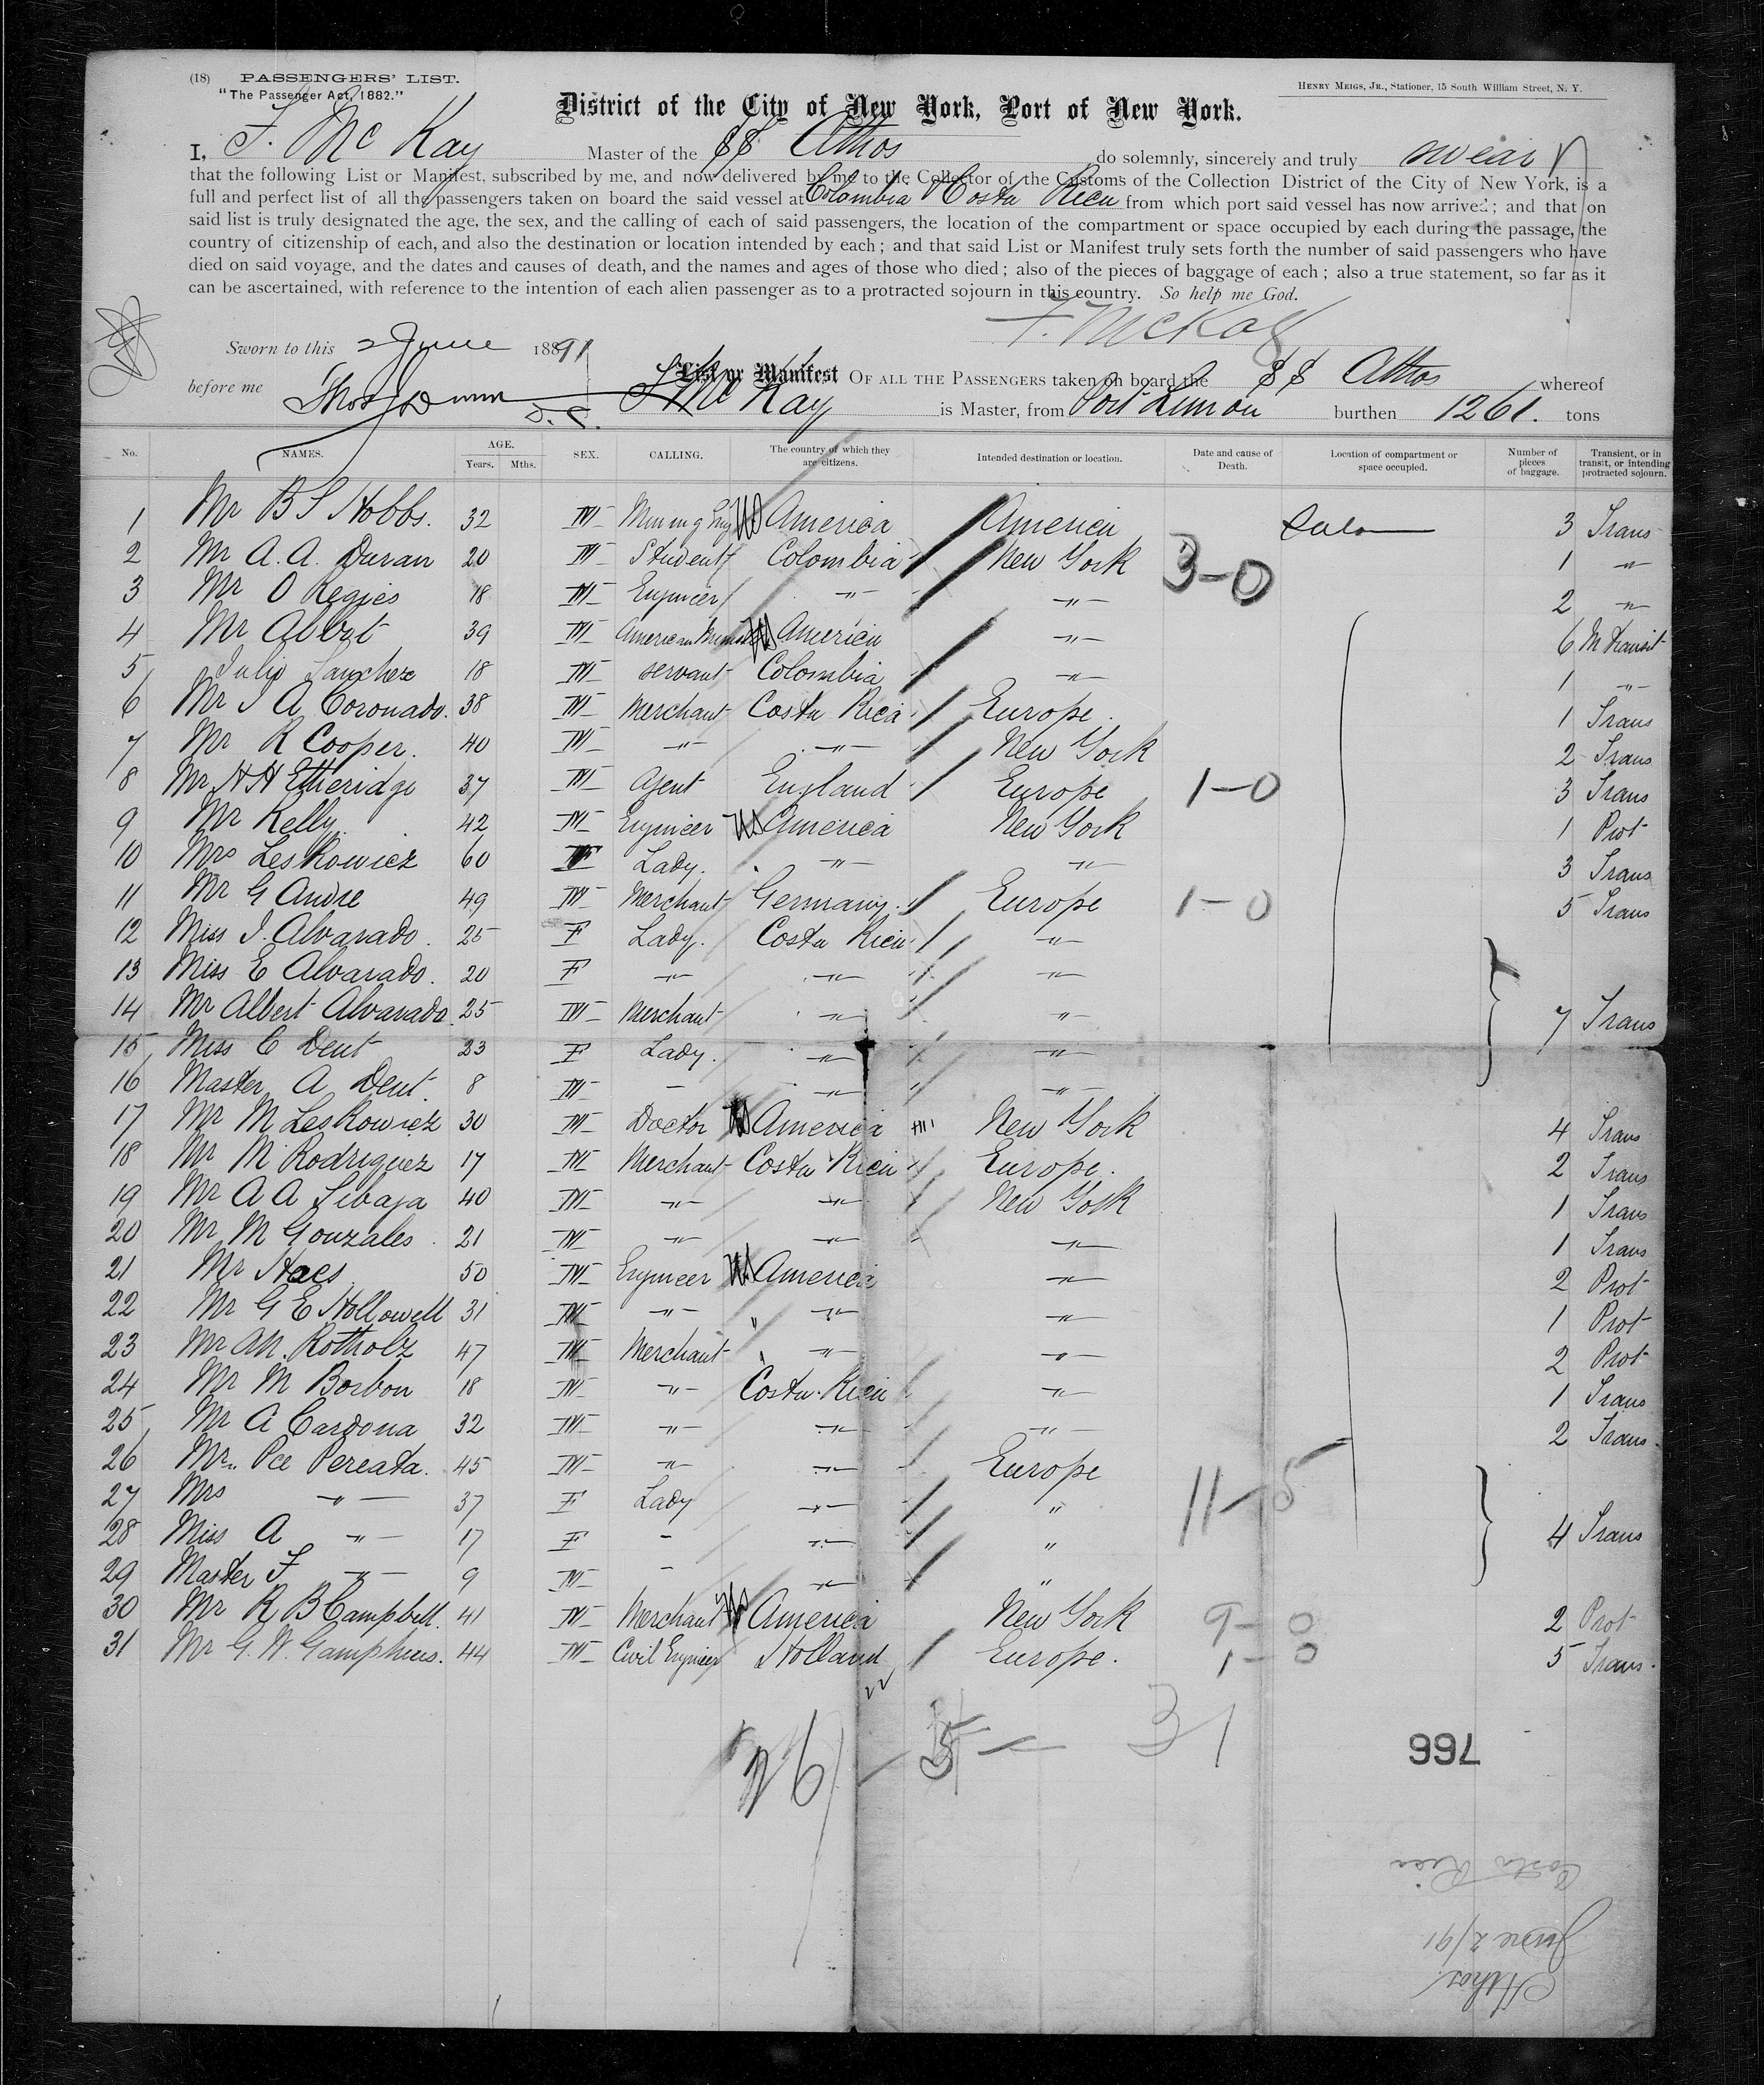 (18) PASSENGERS' LIST.
"The Passenger Act, 1882."
HENRY MEIGS, JR., Stationer, 15 South William Street, N. Y.
District of the City of New York, Port of New York.
I, F. McKay Master of the SS Athos do solemnly, sincerely and truly swear
that the following List or Manifest, subscribed by me, and now delivered by me to the Collector of the Customs of the Collection District of the City of New York, is a
full and perfect list of all the passengers taken on board the said vessel at Colombia & Costa Rica from which port said vessel has now arrived; and that on
said list is truly designated the age, the sex, and the calling of each of said passengers, the location of the compartment or space occupied by each during the passage, the
country of citizenship of each, and also the destination or location intended by each; and that said List or Manifest truly sets forth the number of said passengers who have
died on said voyage, and the dates and causes of death, and the names and ages of those who died; also of the pieces of baggage of each; also a true statement, so far as it
can be ascertained, with reference to the intention of each alien passenger as to a protracted sojourn in this country. So help me God.
F. McKay
Sworn to this 2 June 1891
before me Thos J Dunn D.C.
List or Manifest OF ALL THE PASSENGERS taken on board the SS Athos whereof
F McKay is Master, from Port Limon burthen 1261. tons
No. NAMES. AGE. Years. Mths. SEX. CALLING. The country of which they are citizens. Intended destination or location. Date and cause of Death. Location of compartment or space occupied. Number of pieces of baggage. Transient, or in transit, or intending protracted sojourn.
1 Mr B S Hobbs. 32 M Mining Eng US America America Saloon 3 Trans
2 Mr A. A. Duran 20 M Student Colombia New York 3-0 1 "
3 Mr O Regjes 18 M Engineer " " 2 "
4 Mr Abbot 39 M American Minister US America " 6 In transit
5 Julio Sanchez 18 M servant Colombia " 1 "
6 Mr J A Coronado. 38 M Merchant Costa Rica Europe. 1 Trans
7 Mr R Cooper. 40 M " " New York 2 Trans
8 Mr H H Etheridge 37 M Agent England Europe 1-0 3 Trans
9 Mr Kelly 42 M Engineer US America New York 1 Prot
10 Mrs Leskowicz 60 F Lady. " " 3 Trans
11 Mr G Andre 49 M Merchant Germany. Europe 1-0 5 Trans
12 Miss J. Alvarado. 25 F Lady. Costa Rica "
13 Miss E Alvarado. 20 F " " "
14 Mr Albert Alvarado. 25 M Merchant " " 7 Trans
15 Miss C Dent 23 F Lady. " "
16 Master A Dent. 8 M - " "
17 Mr M Leskowicz 30 M Doctor US America New York 4 Trans
18 Mr M Rodriguez 17 M Merchant Costa Rica Europe. 2 Trans
19 Mr A A Sibaja 40 M " " New York 1 Trans
20 Mr M Gonzales. 21 M " " " 1 Trans
21 Mr Haes 50 M Engineer US America " 2 Prot
22 Mr G E Hollowell 31 M " " " 1 Prot
23 Mr M. Rotholz 47 M Merchant " " 2 Prot
24 Mr M Borbon 18 M " Costa Rica " 1 Trans
25 Mr A Cardona 32 M " " " 2 Trans
26 Mr. Pce Pereata. 45 M " " Europe 11-5
27 Mrs " 37 F Lady " "
28 Miss A " 17 F - " " 4 Trans
29 Master F " 9 M - " "
30 Mr R B Campbell. 41 M Merchant US America New York 9-0 2 Prot
31 Mr G. W. Gamphius. 44 M Civil Engineer Holland Europe. 1-0 5 Trans.
26 5 31
766
Costa Rica
June 2/91
Athos